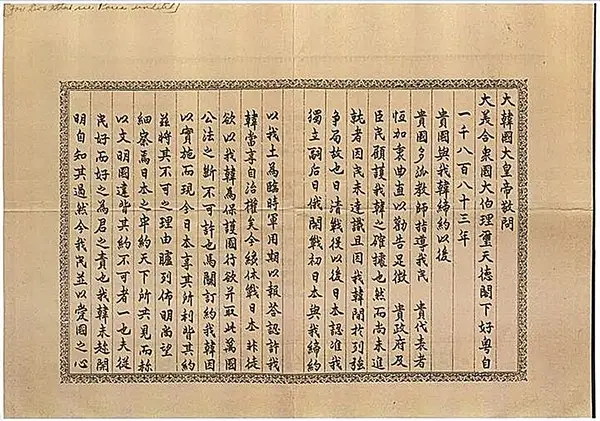 大韓國大皇帝敬問
大美合衆國大伯理璽天德閣下好粤自
一千八百八十三年
貴國與我韓締約以後
貴國多派教師指導我民 貴代表者
恆加衷曲直以勸告足徵 貴政府及
臣民顧護我韓之確據也然而尚未進
就者因民未達識且因我韓間於列强
爭局故也日清戰役以後日本認准我
獨立嗣后日俄開戰初日本與我締約
以我土為臨時軍用期以報答認許我
韓當享自治權矣今纔休戰日本非徒
欲以我韓為保護國行欲并取此萬國
公法之斷不可許也為關訂約我韓因
以實施而現今日本享其所利背其約
茲將其不可之理由臚列佈明尚望
細察焉日本之牢約天下所共見而称
以文明國違背其約不可者一也夫從
民好而好之為君之責也我韓未趁開
明自知其過然今我民並以愛國之心